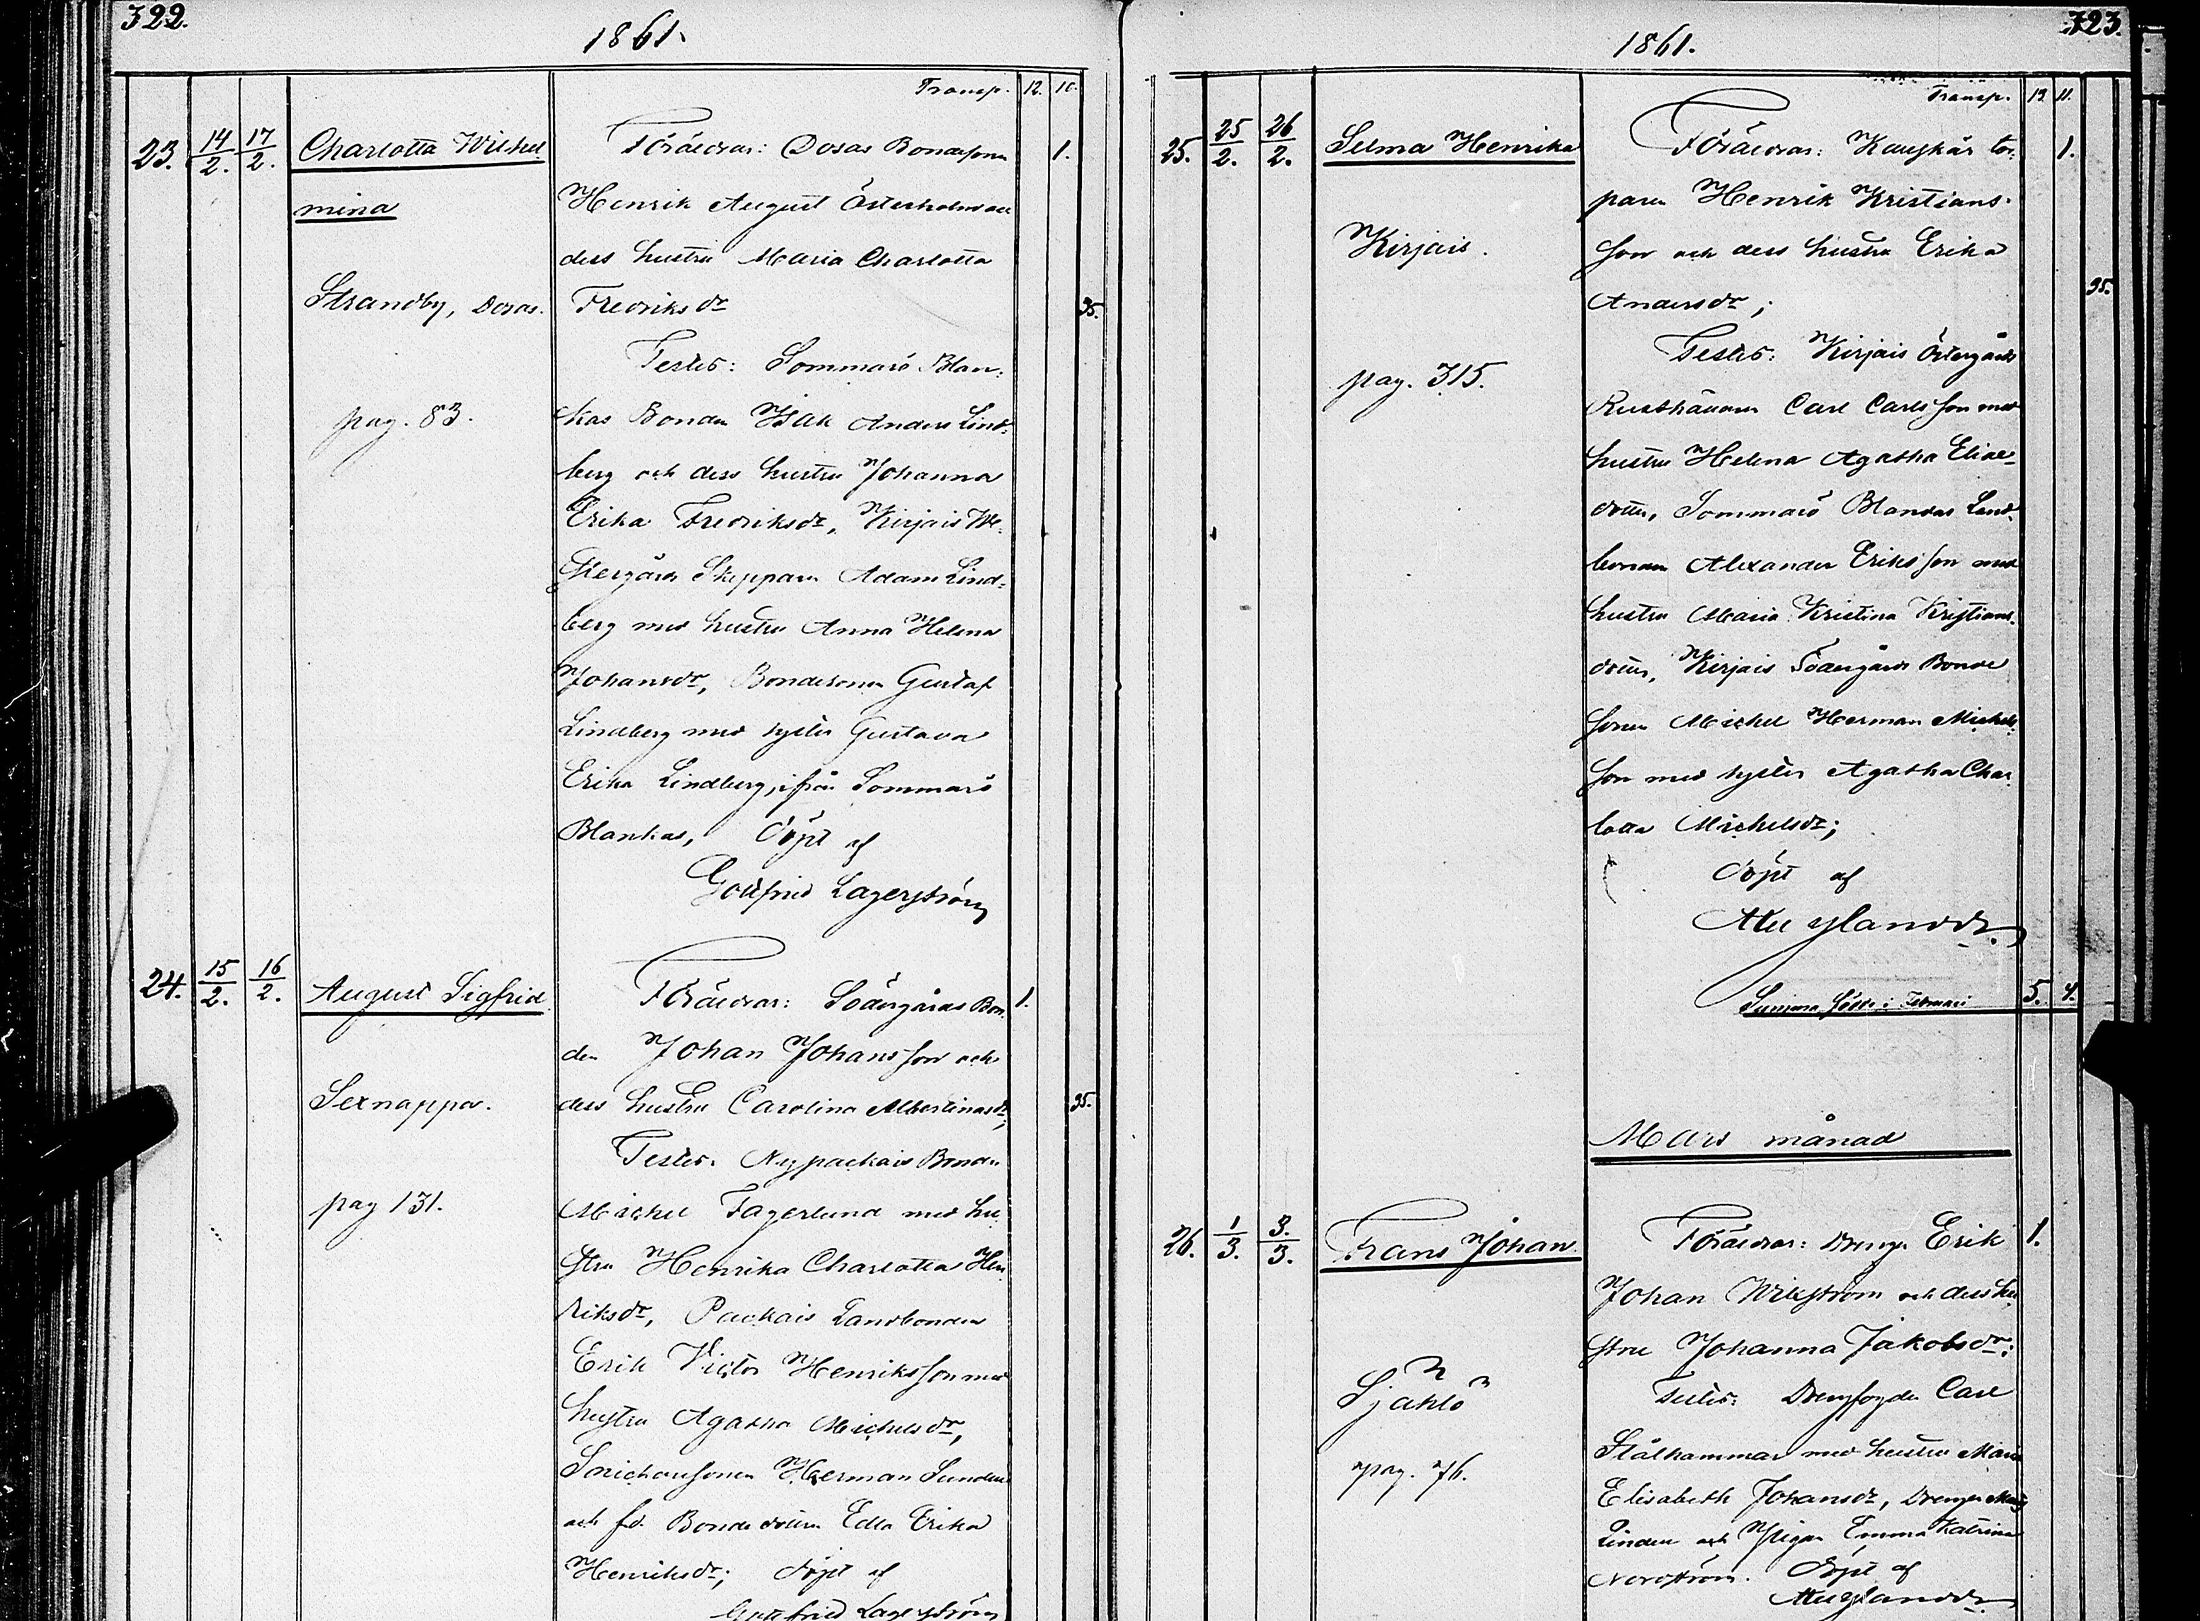 322.
1861.
Transp. 12. 10.
23. 14/2. 17/2. Charlotta Wilhel
mina
Strandby, Dosas.
pag. 83.
Föräldrar: Dosas Bondesonen 1.
Henrik August Österholm och
dess hustru Maria Charlotta
Fredriksdr 35.
Testes: Sommarö Blan:
kas Bonden Isak Anders Lind:
berg och dess hustru Johanna
Erika Fredriksdr, Kirjais We:
stergårds Skepparen Adam Lind:
berg med hustru Anna Helena
Johansdr, Bondesonen Gustaf
Lindberg med syster Gustava
Erika Lindberg, ifrån Sommarö
Blankas, döpt af
Gottfrid Lagerström
24. 15/2. 16/2. August Sigfrid
Sexnappa.
pag 131.
Föräldrar: Södergårds Bon: 1.
den Johan Johansson och
dess hustru Carolina Albertinasdr; 35.
Testes: Nypackais Bonden
Michel Fagerlund med hu
stru Henrika Charlotta Hen
riksdr, Packais Landbonden
Erik Victor Henriksson med
hustru Agatha Michelsdr,
Herman
och f.d. Bondedottern Edla Erika
Henriksdr; döpt af
Gottfried Lagerström
323.
1861.
Transp. 12. 11.
25. 25/2. 26/2. Selma Henrika
Kirjais.
pag. 315.
Föräldrar: tor: 1.
paren Henrik Kristians:
son och dess hustru Erika
Andersdr; 35.
Testes: Kirjais Östergårds
Rusthållaren Carl Carlsson med
hustru Helena Agatha Elias-
dotter, Sommarö Land:
bonden Alexander Eriksson med
hustru Maria Kristina Kristians:
dotter, Kirjais Södergårds Bonde
sonen Michel Herman Michels:
son med syster Agatha Char
lotta Michelsdr;
döpt af
Summa födde i Februari 5. 4.
Mars månad
26. 1/3. 3/3. Frans Johan
Själö
pag. 76.
Föräldrar: Drengen Erik 1.
Johan Wikström och dess hu
stru Johanna Jakobsdr:
Testes: Drengfogden Carl
Stålhammar med hustru Maria
Elisabeth Johansdr, Drengen
Linden och Pigan Emma Katrina
Nordström. Döpt af